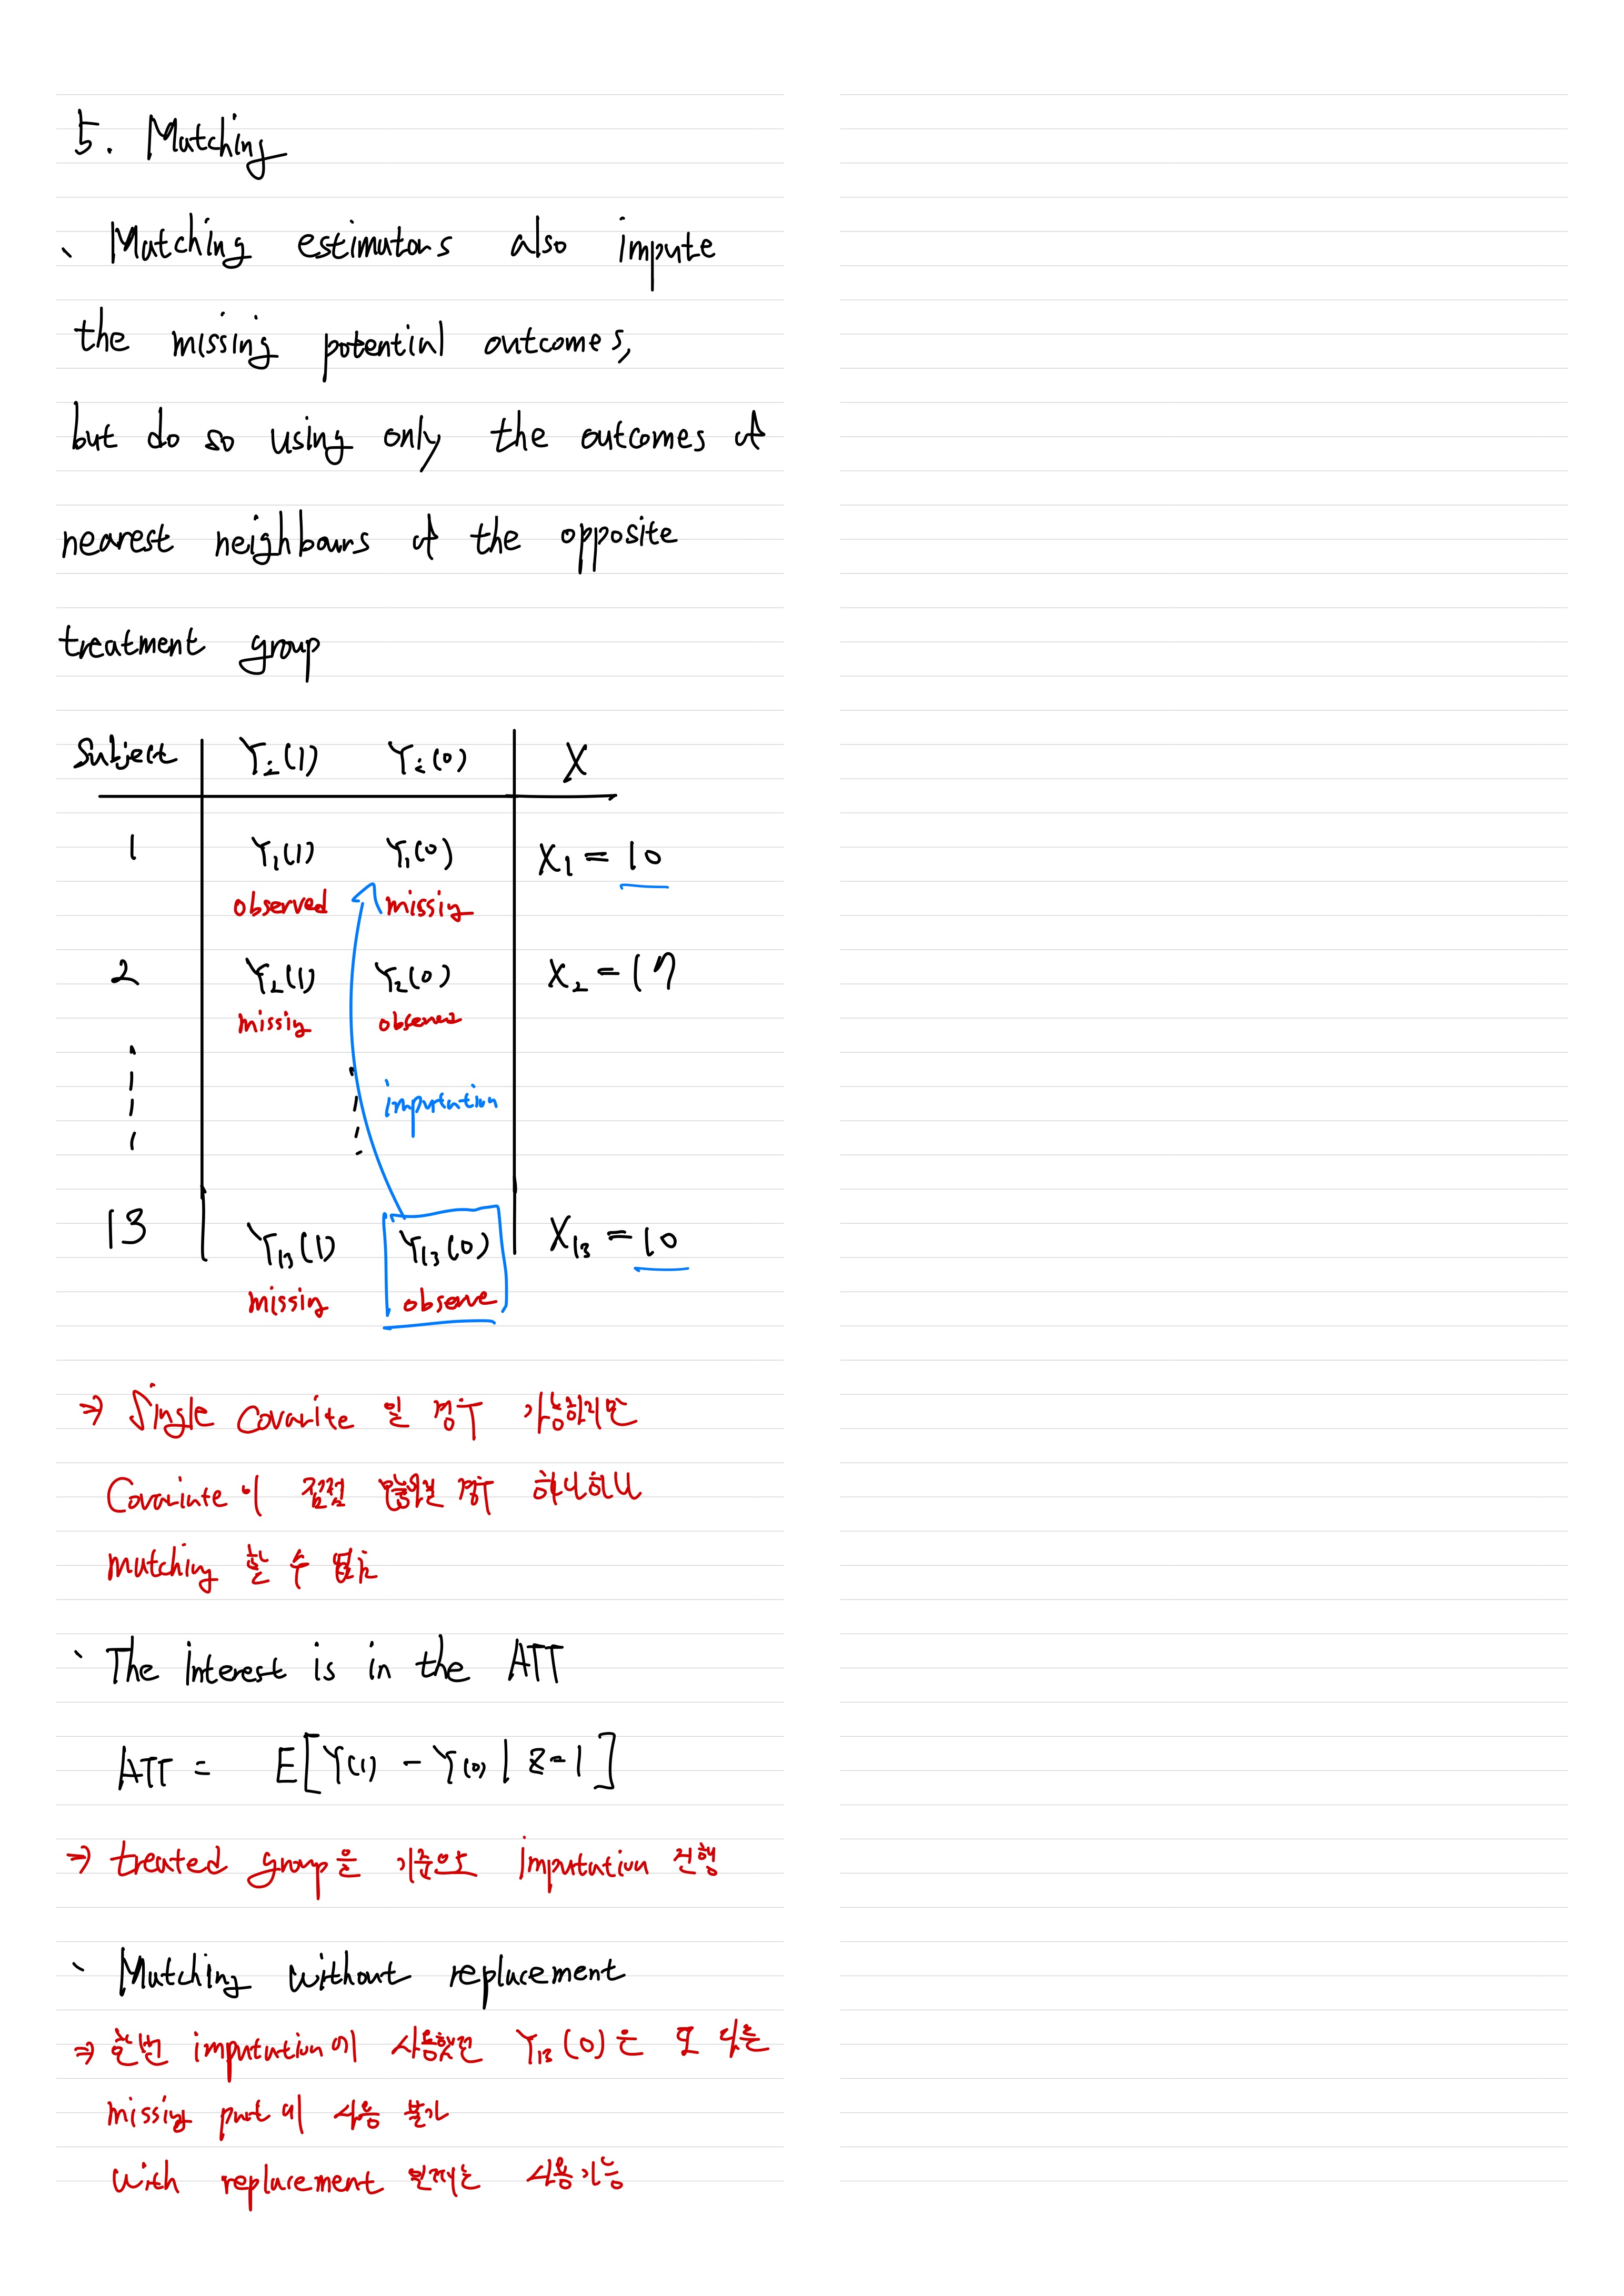 5. Matching
、 Matching estimators also impute
the missing potential outcomes,
but do so using only the outcomes of
nearest neighbours of the opposite
treatment group
Subject Yi(1) Yi(0) X
1 Y1(1) Y1(0) X1 = 10
observed missing
2 Y2(1) Y2(0) X2 = 17
missing observed
imputation
13 Y13(1) Y13(0) X13 = 10
missing observe
⇒ Single Covarite 일 경우 가능하지만
Covariate이 점점 많아질 경우 하나하나
matching 할 수 없음
、 The interest is in the ATT
ATT = E[Y(1) - Y(0) | Z=1]
⇒ treated group을 기준으로 imputation 진행
、 Matching without replacement
⇒ 한번 imputation에 사용했던 Y13(0)은 또 다른
missing part에 사용 불가
with replacement 문제는 사용가능